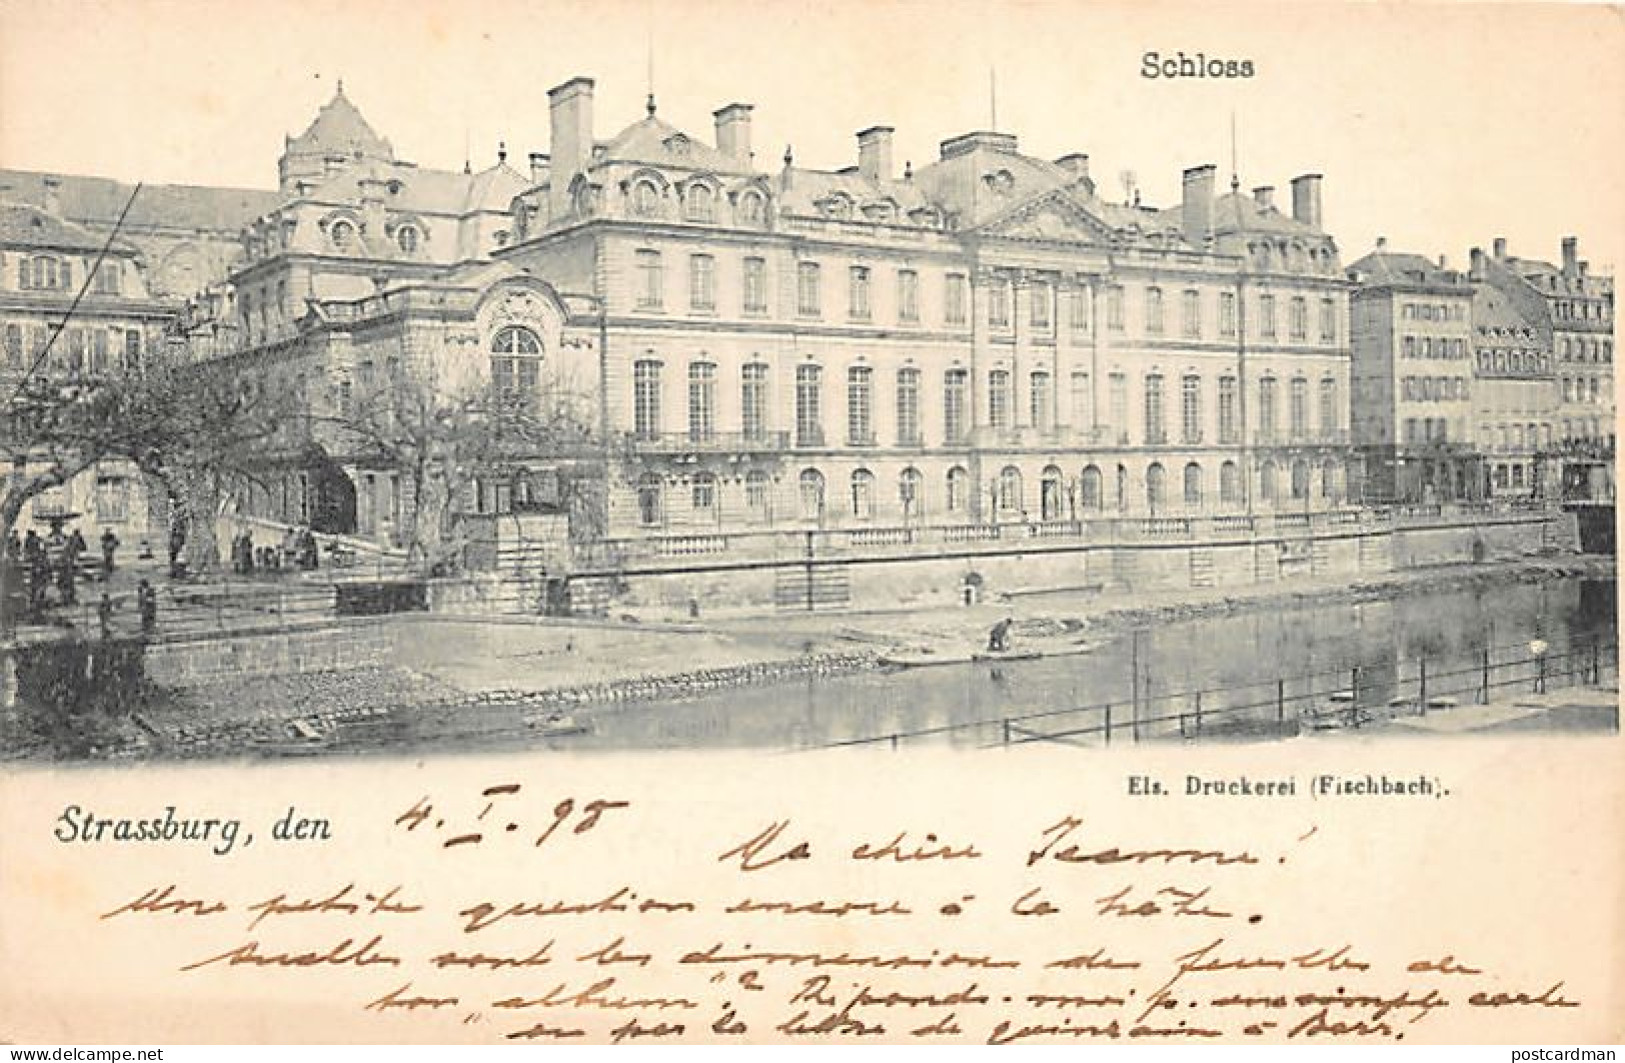 Schloss
Els. Druckerei (Fischbach).
Strassburg, den 4. I. 98
Ma chère Jeanne!
Une petite question encore à la hâte.
Quelles sont les dimensions des feuilles de
ton "album"? Réponds-moi p. une simple carte
ou par la lettre de quinzain à Barr!
postcardman